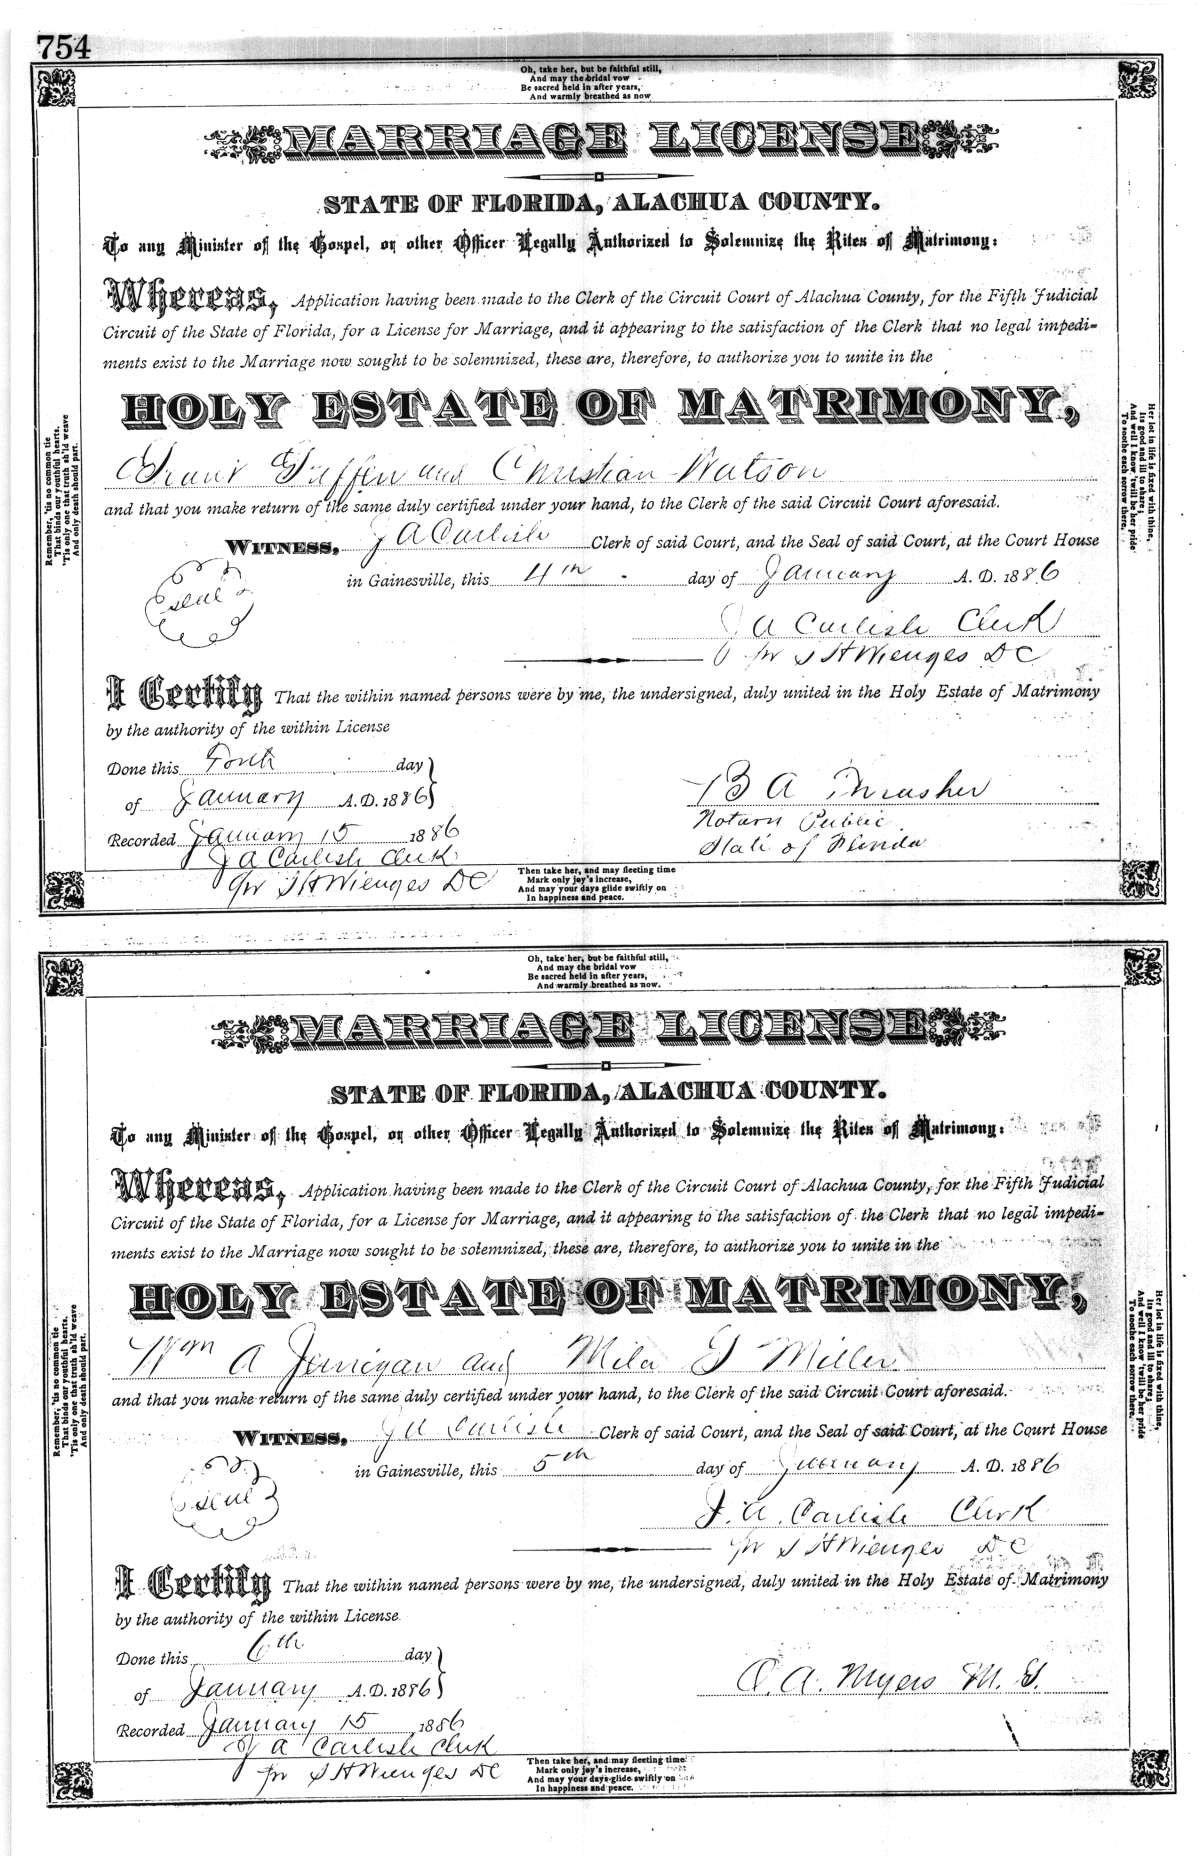 754
Oh, take her, but be faithful still,
And may the bridal vow
Be sacred held in after years,
And warmly breathed as now
MARRIAGE LICENSE
STATE OF FLORIDA, ALACHUA COUNTY.
To any Minister of the Gospel, or other Officer Legally Authorized to Solemnize the Rites of Matrimony:
Whereas, Application having been made to the Clerk of the Circuit Court of Alachua County, for the Fifth Judicial
Circuit of the State of Florida, for a License for Marriage, and it appearing to the satisfaction of the Clerk that no legal impedi-
ments exist to the Marriage now sought to be solemnized, these are, therefore, to authorize you to unite in the
HOLY ESTATE OF MATRIMONY,
and Christian Watson
and that you make return of the same duly certified under your hand, to the Clerk of the said Circuit Court aforesaid.
WITNESS, J A Carlisle Clerk of said Court, and the Seal of said Court, at the Court House
in Gainesville, this 4th day of January A. D. 1886
seal
J A Carlisle Clerk
pr S H Wienges D C
I Certify That the within named persons were by me, the undersigned, duly united in the Holy Estate of Matrimony
by the authority of the within License
Done this Forth day
of January A. D. 1886
B A Thrasher
Notary Public
State of Florida
Recorded January 15 1886
J A Carlisle Clerk
pr S H Wienges D C
Remember, 'tis no common tie
That binds our youthful hearts,
'Tis only one that truth sh'ld weave
And only death should part.
Her lot in life is fixed with thine,
Its good and ill to share;
And well I know 'twill be her pride
To soothe each sorrow there.
Then take her, and may fleeting time
Mark only joy's increase,
And may your days glide swiftly on
In happiness and peace.
Oh, take her, but be faithful still,
And may the bridal vow
Be sacred held in after years,
And warmly breathed as now.
MARRIAGE LICENSE
STATE OF FLORIDA, ALACHUA COUNTY.
To any Minister of the Gospel, or other Officer Legally Authorized to Solemnize the Rites of Matrimony:
Whereas, Application having been made to the Clerk of the Circuit Court of Alachua County, for the Fifth Judicial
Circuit of the State of Florida, for a License for Marriage, and it appearing to the satisfaction of the Clerk that no legal impedi-
ments exist to the Marriage now sought to be solemnized, these are, therefore, to authorize you to unite in the
HOLY ESTATE OF MATRIMONY,
Wm A Jernigan and Mila G Miller
and that you make return of the same duly certified under your hand, to the Clerk of the said Circuit Court aforesaid.
WITNESS, J A Carlisle Clerk of said Court, and the Seal of said Court, at the Court House
in Gainesville, this 5th day of January A. D. 1886
seal
J. A. Carlisle Clerk
pr S H Wienges D C
I Certify That the within named persons were by me, the undersigned, duly united in the Holy Estate of Matrimony
by the authority of the within License
Done this 6th day
of January A. D. 1886
O. A. Myers M. G.
Recorded January 15 1886
J A Carlisle Clerk
pr S H Wienges D C
Remember, 'tis no common tie
That binds our youthful hearts.
'Tis only one that truth sh'ld weave
And only death should part.
Her lot in life is fixed with thine,
Its good and ill to share;
And well I know 'twill be her pride
To soothe each sorrow there.
Then take her, and may fleeting time
Mark only joy's increase,
And may your days glide swiftly on
In happiness and peace.